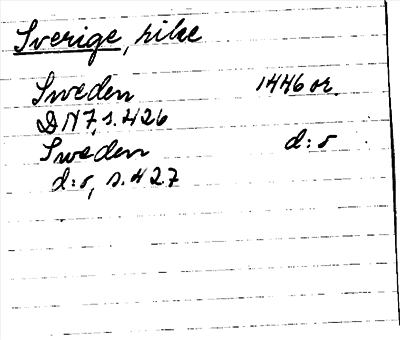 Sverige, rike
Sweden 1446 or.
DN 7, s. 426
Sweden d:o
d:o, s. 427